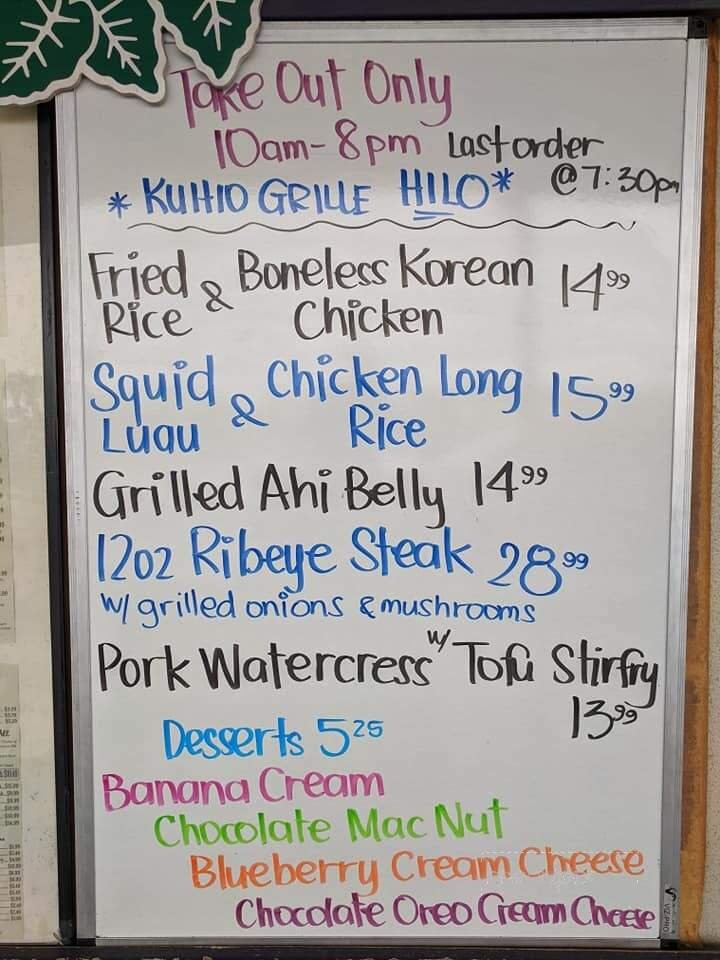 Take Out Only
10am-8pm Last order
@ 7:30pm
* KUHIO GRILLE HILO *
Fried Rice & Boneless Korean Chicken 14.99
Squid Luau & Chicken Long Rice 15.99
Grilled Ahi Belly 14.99
12oz Ribeye Steak 28.99
w/ grilled onions & mushrooms
Pork Watercress w/ Tofu Stirfry
13.99
Desserts 5.25
Banana Cream
Chocolate Mac Nut
Blueberry Cream Cheese
Chocolate Oreo Cream Cheese